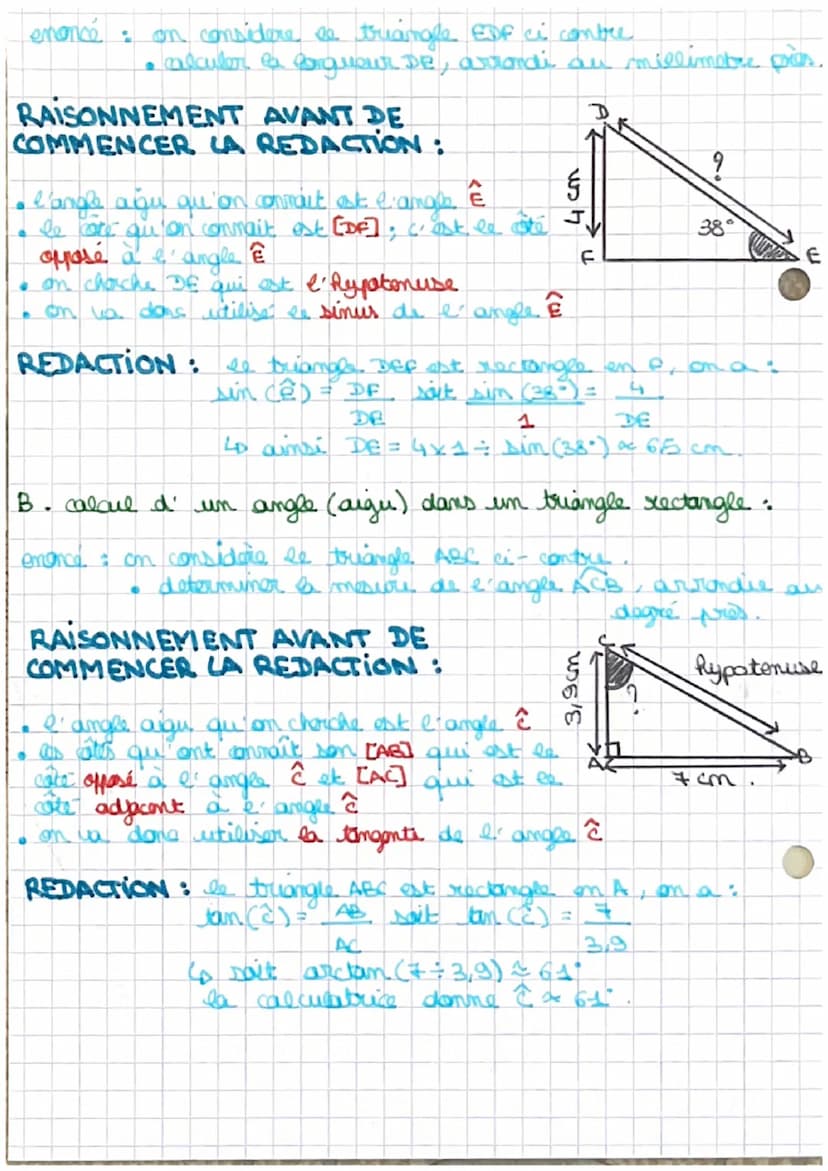 enoncé : on considere le triangle EDF ci contre
• calculer la longueur DE, arrondi au millimetre près.
RAISONNEMENT AVANT DE
COMMENCER LA REDACTION :
• l'angle aigu qu'on connait est l'angle Ê
• le coté qu'on connait est [DF] ; c'est le côté
opposé à l'angle Ê
• on cherche DE qui est l'hypotenuse
• on va donc utilisé le sinus de l'angle Ê
D
?
4 cm
38°
F
E
REDACTION : le triangle DEF est rectangle en F, on a :
sin (ê) = DF soit sin (38°) = 4
DE 1 DE
↳ ainsi DE = 4x1 ÷ sin(38°) ≈ 6,5 cm.
B. calcul d'un angle (aigu) dans un triangle rectangle :
enoncé : on considère le triangle ABC ci-contre.
• determiner la mesure de l'angle ACB, arrondie au
degré près.
RAISONNEMENT AVANT DE
COMMENCER LA REDACTION :
• l'angle aigu qu'on cherche est l'angle ĉ
• les côtés qu'ont connaît son [AB] qui est le
côté opposé à l'angle ĉ et [AC] qui est le
côté adjacent à l'angle ĉ
• on va donc utiliser la tangente de l'angle ĉ
C
hypotenuse
3,9cm
?
A
B
7 cm.
REDACTION : le triangle ABC est rectangle en A, on a :
tan(ĉ) = AB soit tan (ĉ) = 7
AC 3,9
↳ soit arctan (7÷3,9) ≈ 61°
la calculatrice donne ĉ ≈ 61°.